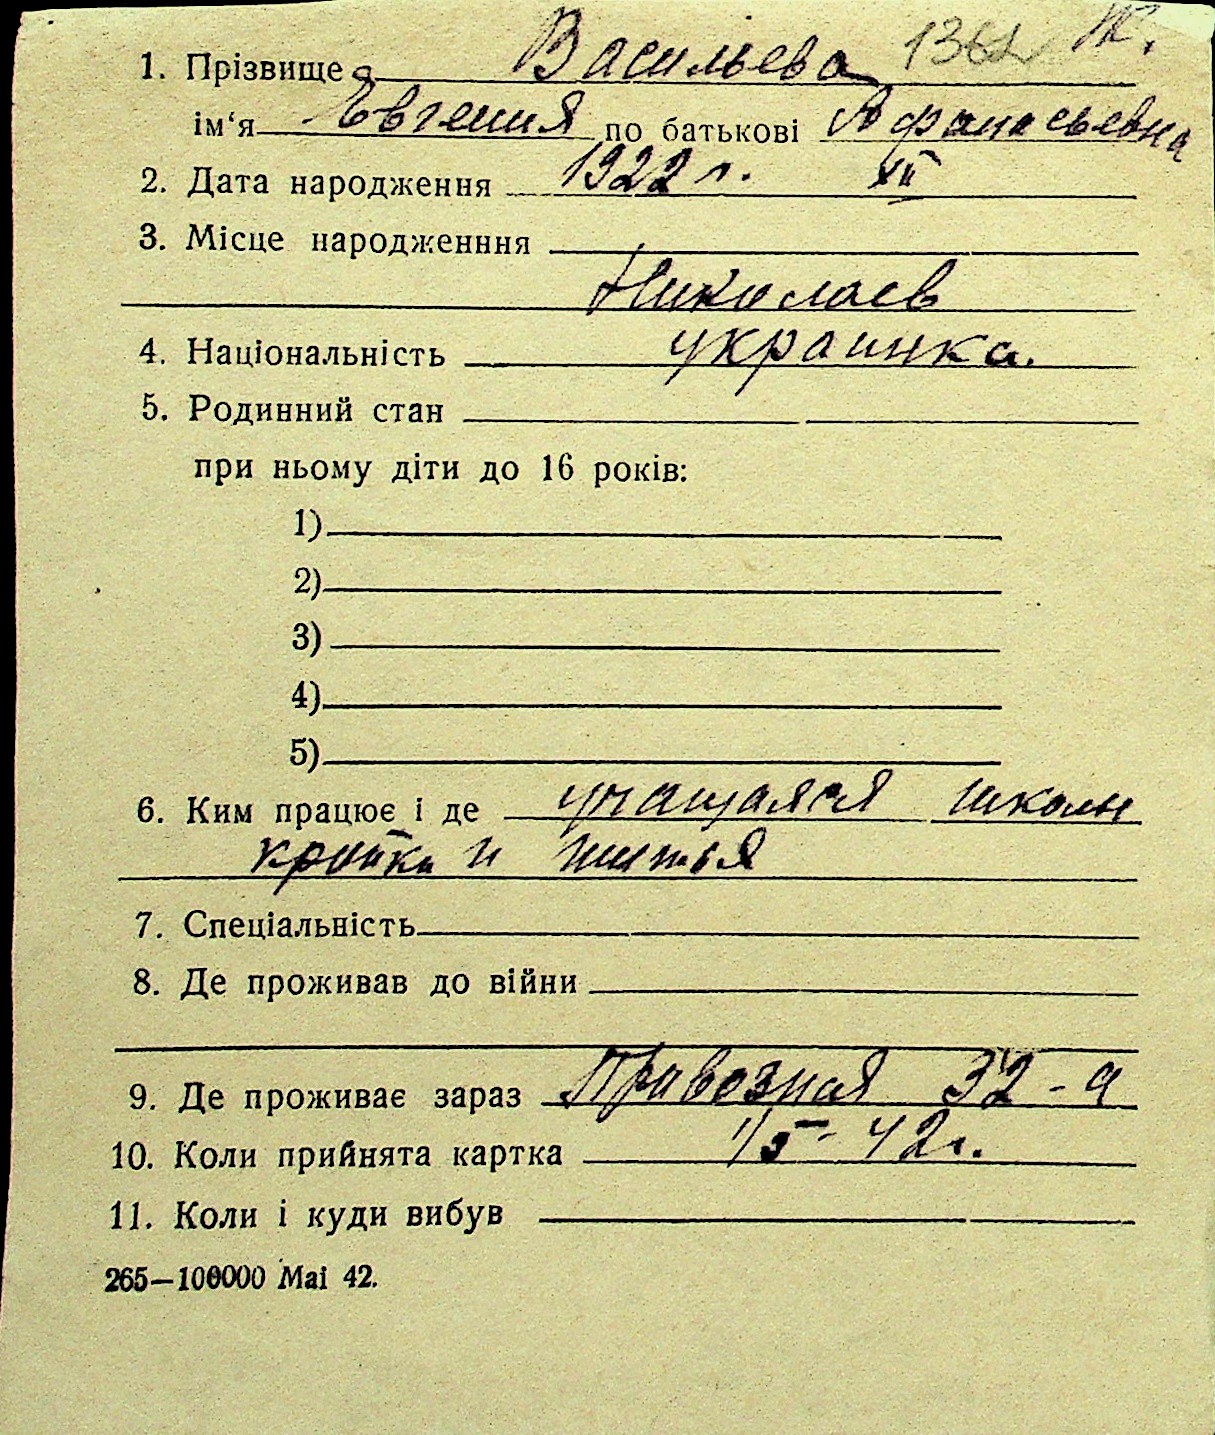 1. Прізвище Васильева
ім‘я Евгения по батькові Афанасьевна
2. Дата народження 1922 г. XII
3. Місце народженння
Николаев
4. Національність украинка.
5. Родинний стан
при ньому діти до 16 років:
1)
2)
3)
4)
5)
6. Ким працює і де учащаяся школы
кройки и шитья
7. Спеціальність
8. Де проживав до війни
9. Де проживає зараз Привозная 32-а
10. Коли прийнята картка 1/5-42г.
11. Коли і куди вибув
265—100000 Mai 42.